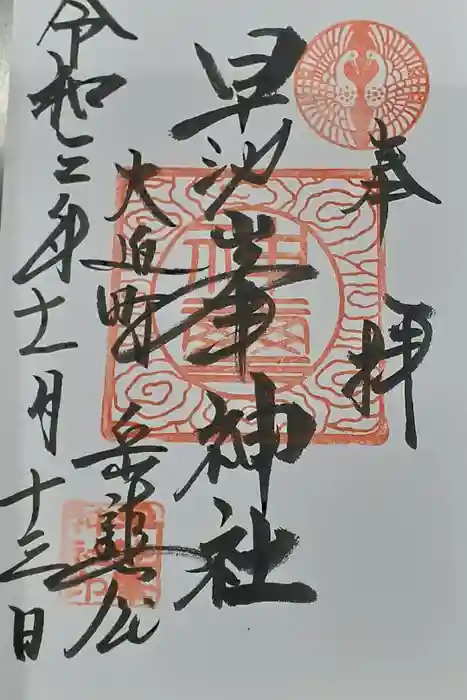 奉拝
早池峯神社
大迫町
岳鎮公
令和二年十一月十三日